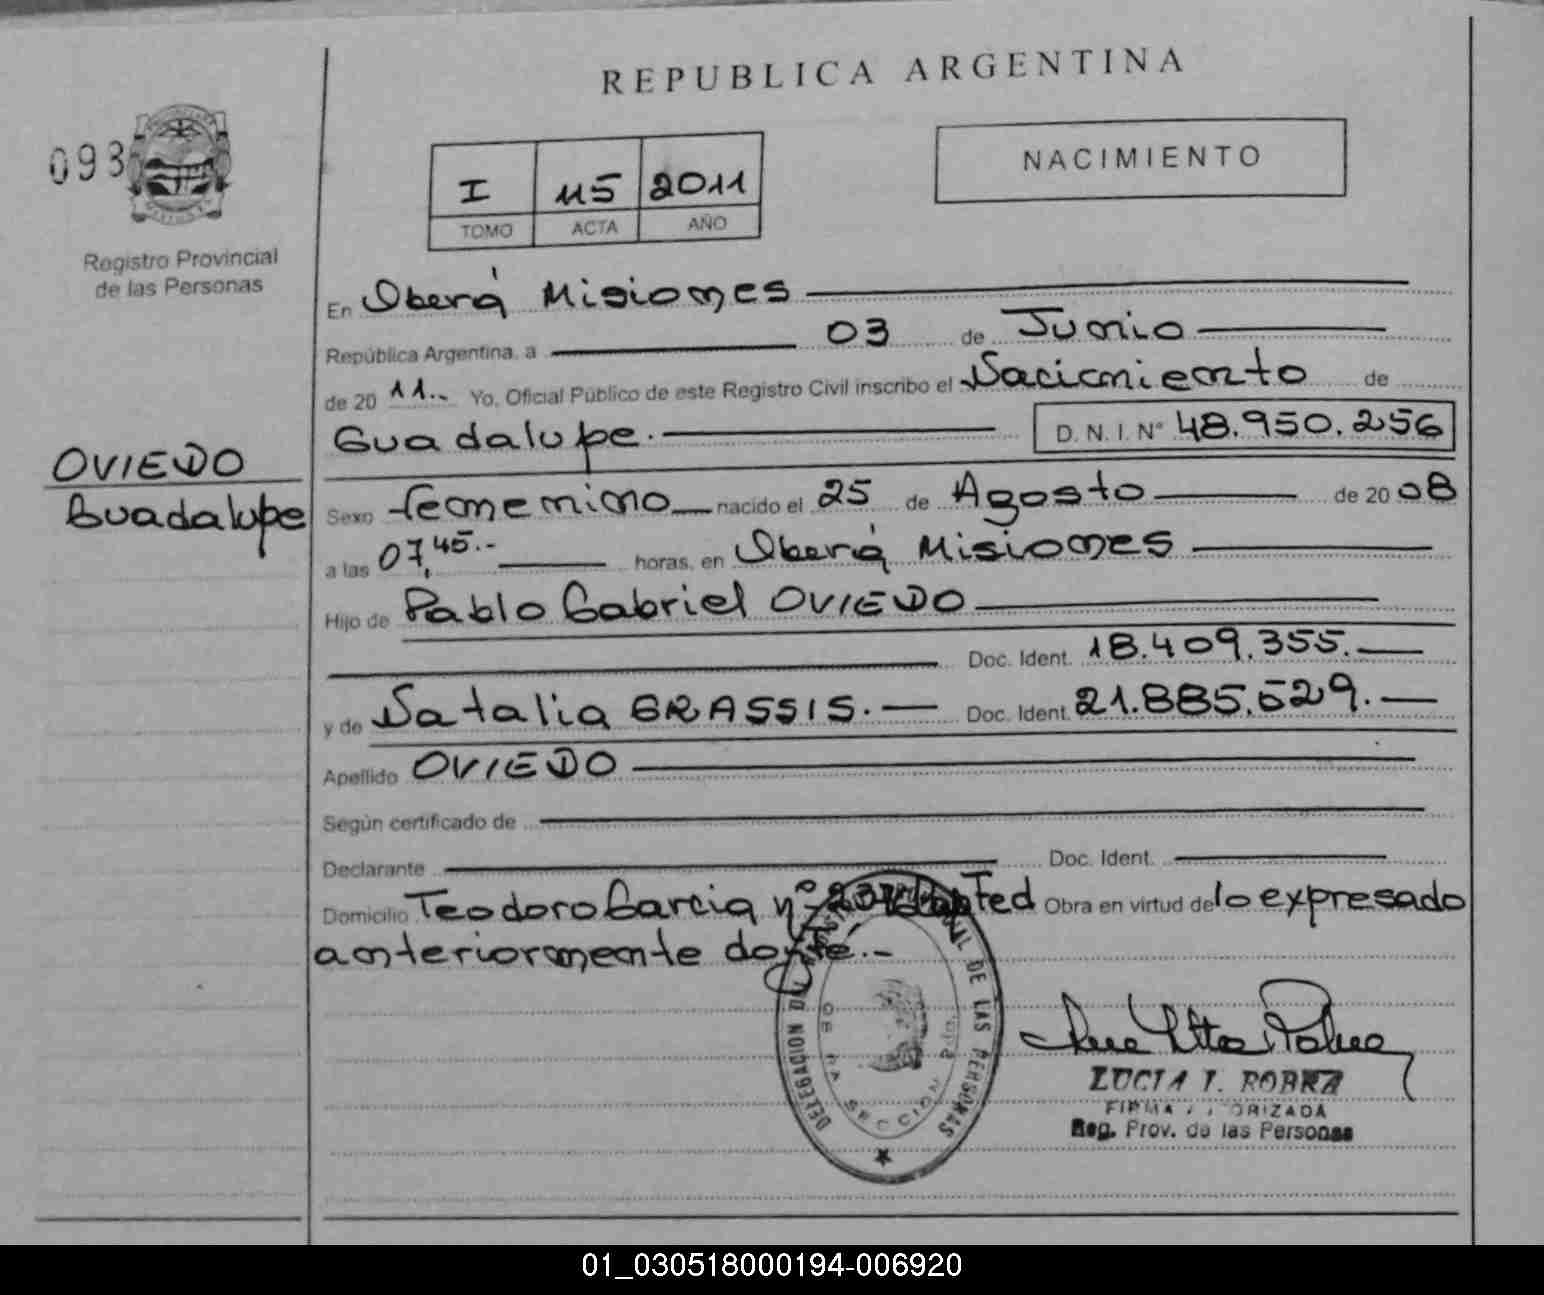 REPUBLICA ARGENTINA
093
Registro Provincial
de las Personas
I 115 2011
TOMO ACTA AÑO
NACIMIENTO
OVIEDO
Guadalupe
En Oberá Misiones
República Argentina, a 03 de Junio
de 20 11.- Yo, Oficial Público de este Registro Civil inscribo el Nacimiento de
Guadalupe. D. N. I. N° 48.950.256
Sexo femenino nacido el 25 de Agosto de 20 08
a las 07,45.- horas, en Oberá Misiones
Hijo de Pablo Gabriel OVIEDO
Doc. Ident. 18.409.355.
y de Natalia BRASSIS. Doc. Ident. 21.885.529.
Apellido OVIEDO
Según certificado de
Declarante Doc. Ident.
Domicilio Teodoro Garcia nº Fed Obra en virtud de lo expresado
anteriormente doy fe.-
DELEGACION DE LAS PERSONAS
SECCION
LUCIA I. ROBKA
FIRMA AUTORIZADA
Reg. Prov. de las Personas
01_030518000194-006920